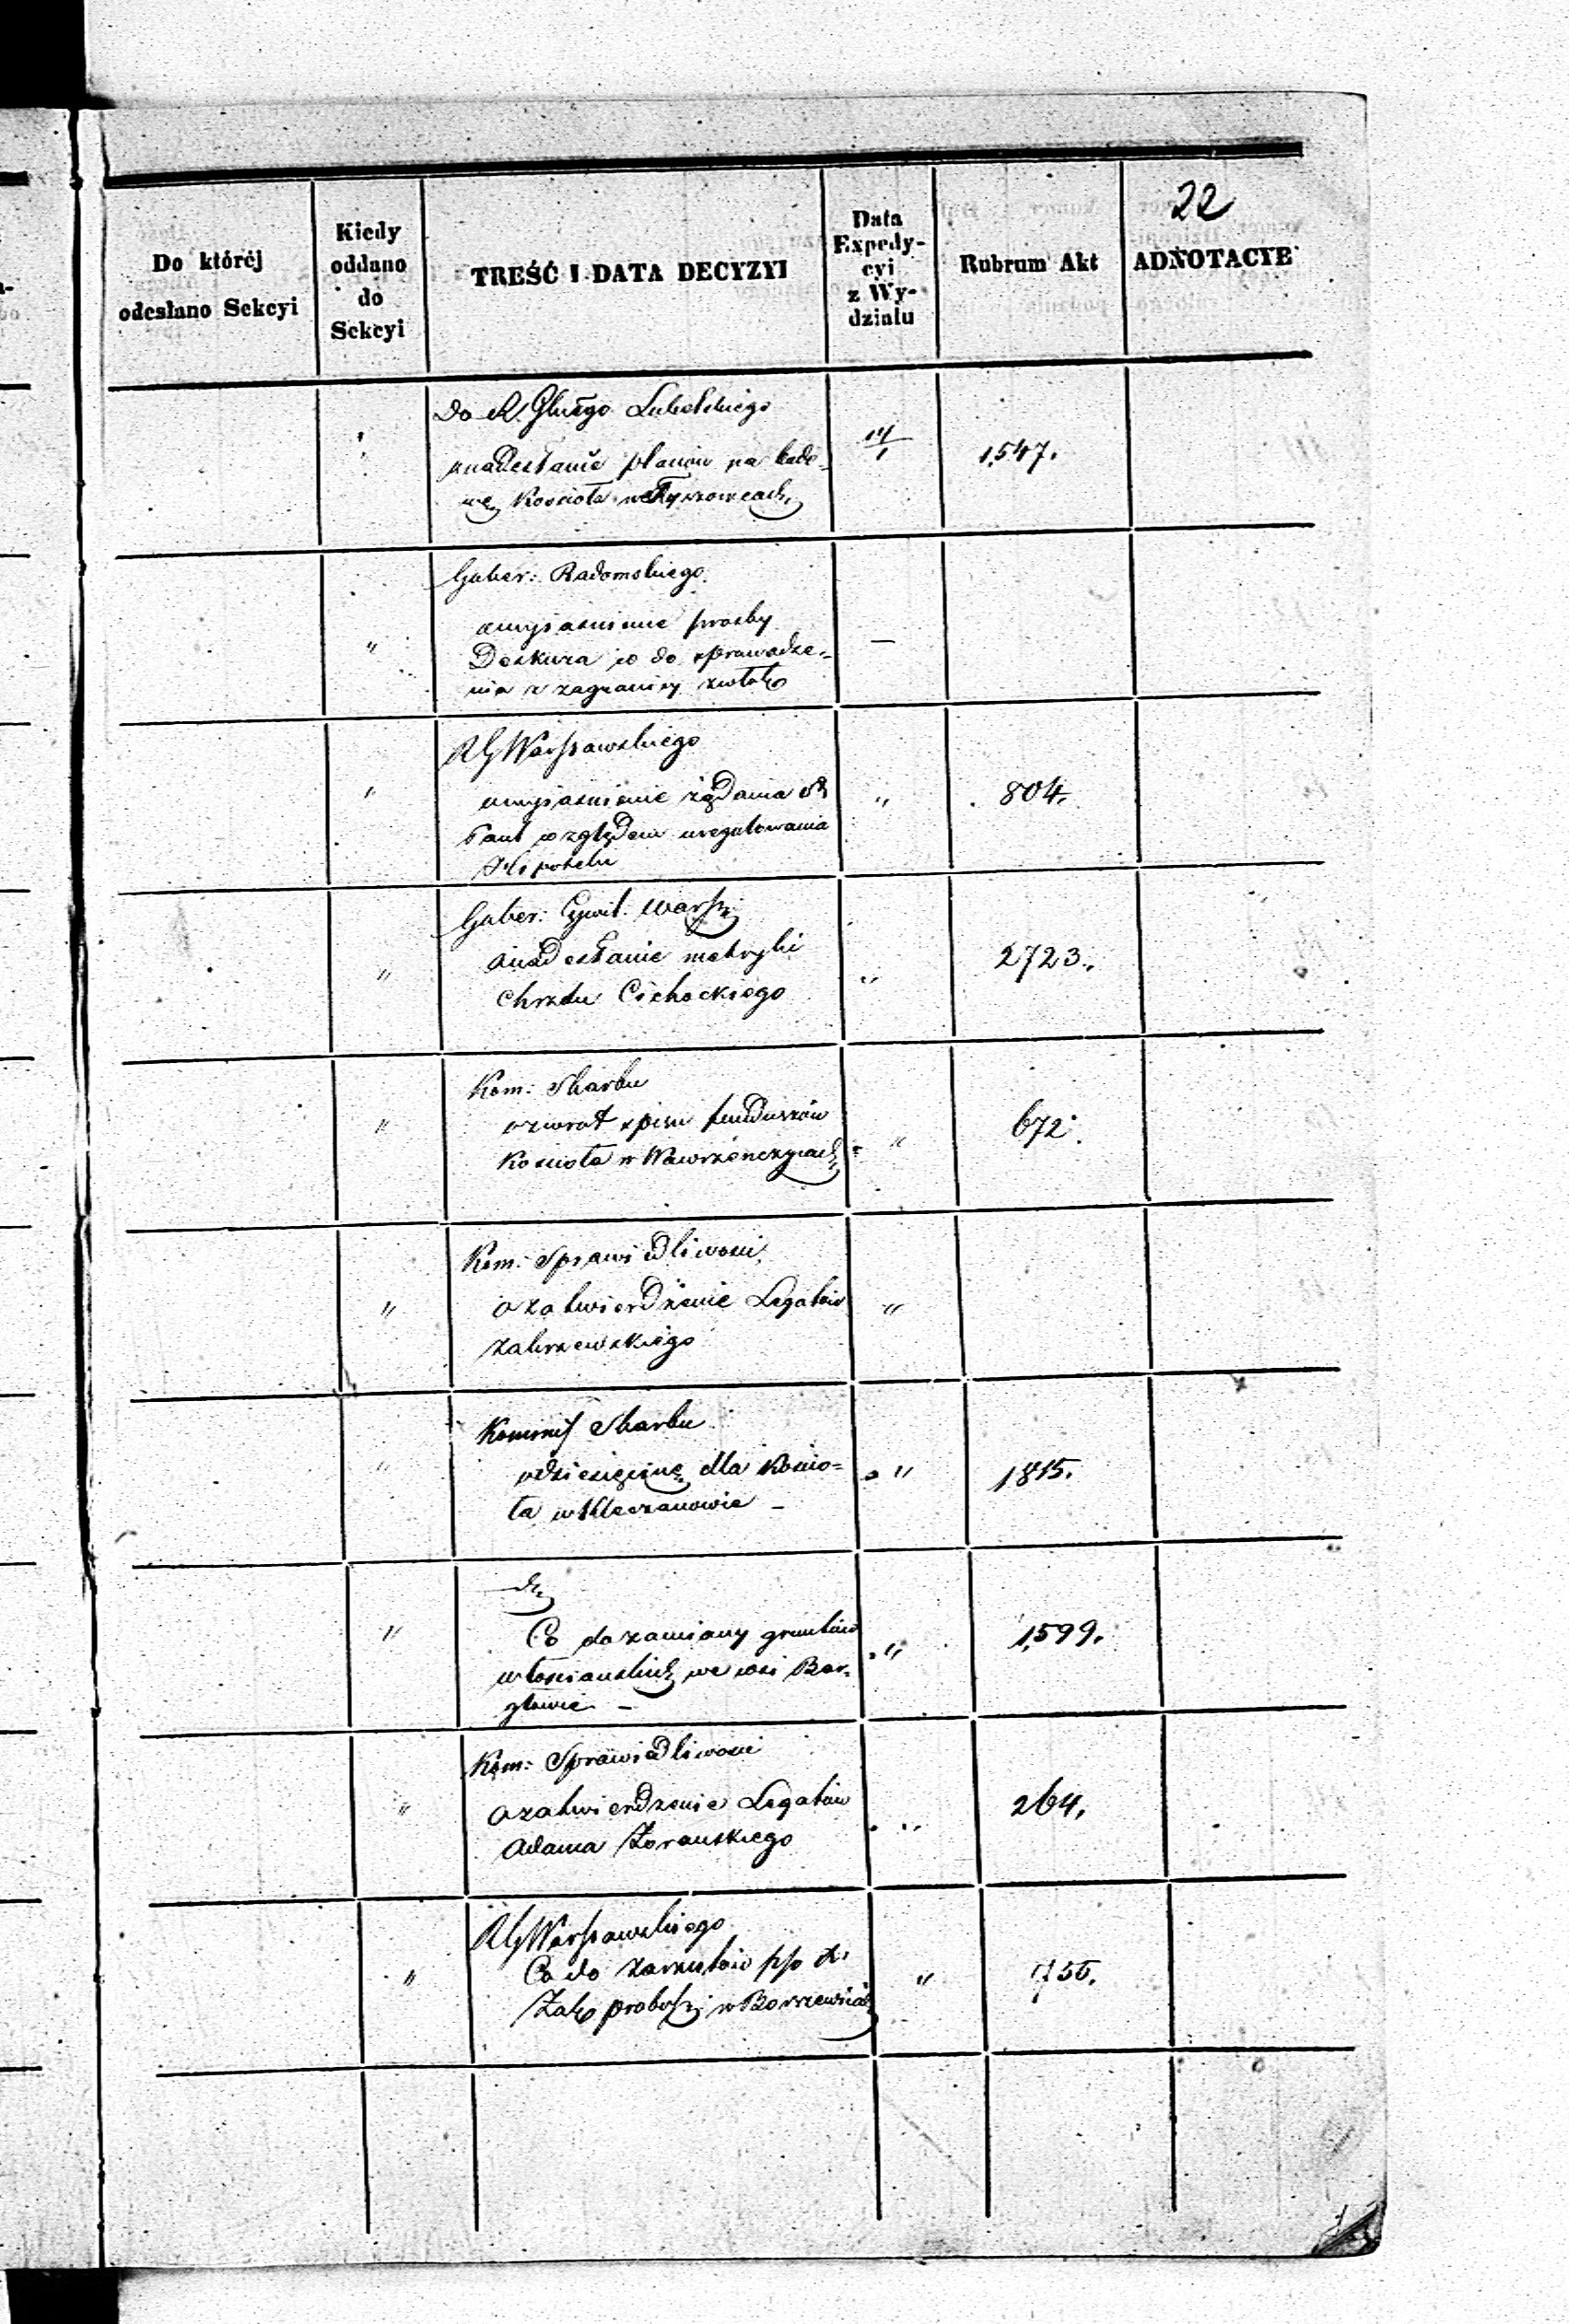 22
Do której
odesłano Sekcyi
Kiedy
oddano
do
Sekcyi
TREŚĆ I DATA DECYZYI
Data
Expedy-
cyi
z Wy-
działu
Rubrum Akt
ADNOTACYE
Do R. Gbnego Lubelskiego
o nadesłanie planów na budo-
wę Kościoła w Tyszowcach
14/1
1547.
Guber: Radomskiego
o wyjaśnienie prośby
Deskura co do sprowadze-
nia z zagranicy zwłok
"
—
RG Warszawskiego
o wyjaśnienie żądania
względem uregulowania
Hipoteki
"
"
804.
Guber: Cywil. Warsz:
o nadesłanie metryki
Chrztu Cichockiego
"
"
2723.
Kom: Skarbu
o zwrot spisu funduszów
Kościoła w Wawrzeńczycach
"
"
672.
Kom: Sprawiedliwości
o zatwierdzenie Legatów
Zakrzewskiego
"
"
Kommis Skarbu
o dziesięcinę dla Kościo=
ła w Kleczanowie –
"
"
1815.
"
Co do zamiany gruntów
włościańskich we wsi Bar-
głowie –
"
1599.
Kom: Sprawiedliwości
o zatwierdzenie Legatów
Adama Żorawskiego
"
"
264.
RG Warszawskiego
Co do zarzutów p/o X.
proboszcz w Borszewicach
"
"